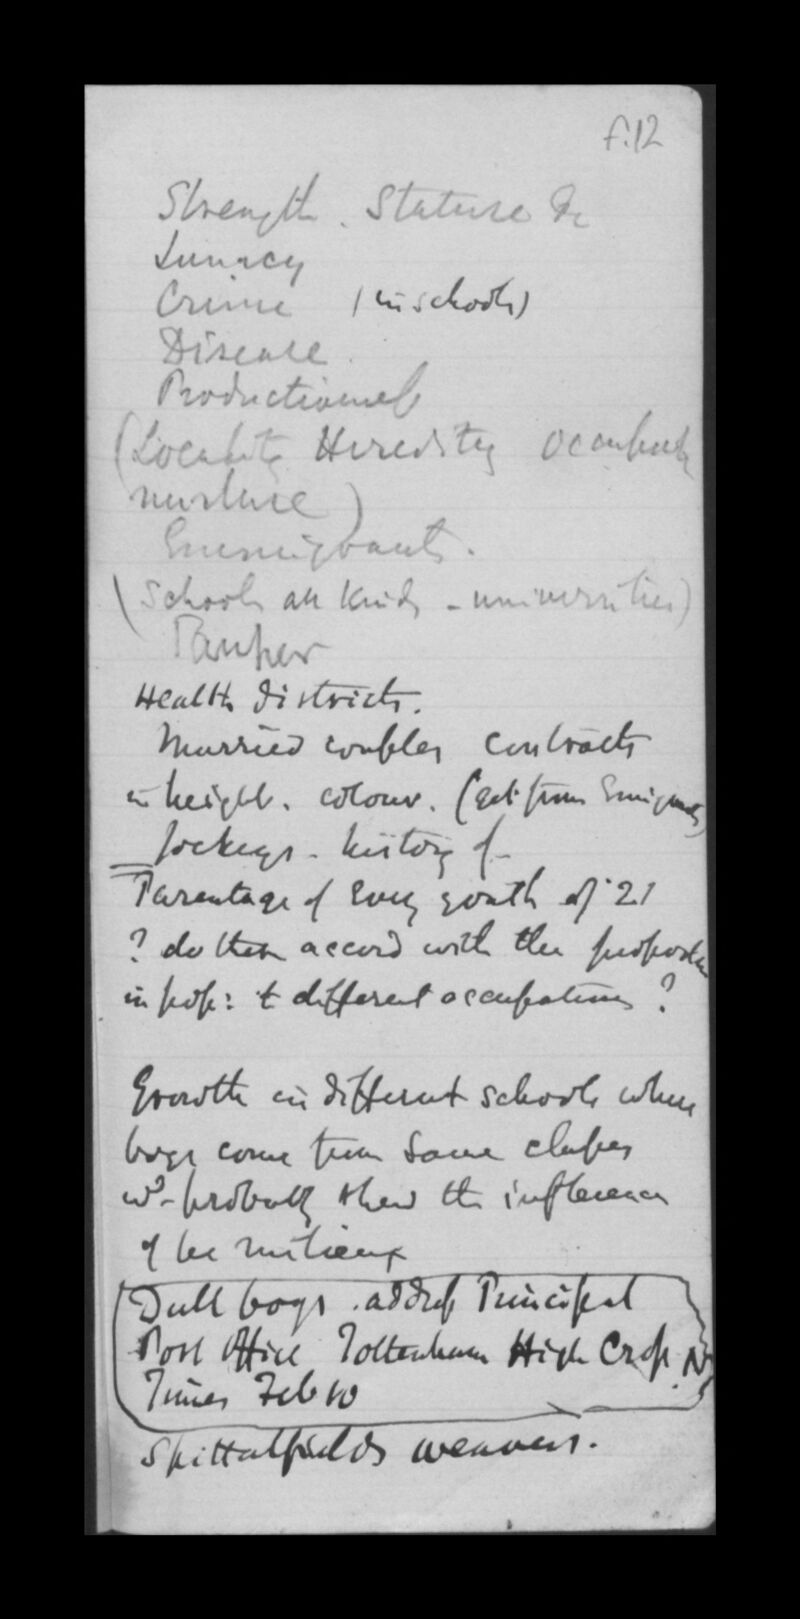 f.12
Strength. Stature &c
Lunacy
Crime (in schools)
Disease.
Productiveness
(Locality Heredity Occupation
nurture)
Emmigrants.
(Schools all kinds - universities)
Pauper
Health districts.
Married couples contrasts
in height. colour. (get from Emigrants)
Jockeys - history of -
Parentage of every youth of 21
? do these accord with the proportion
in pop: & different occupations ?
Growth in different schools where
boys come from same classes
wd. probably shew the influence
of the milieux
Dull boys. address Principal
Post Office Tottenham High Cross. N.
Times Feb 10
Spittalfields weavers.